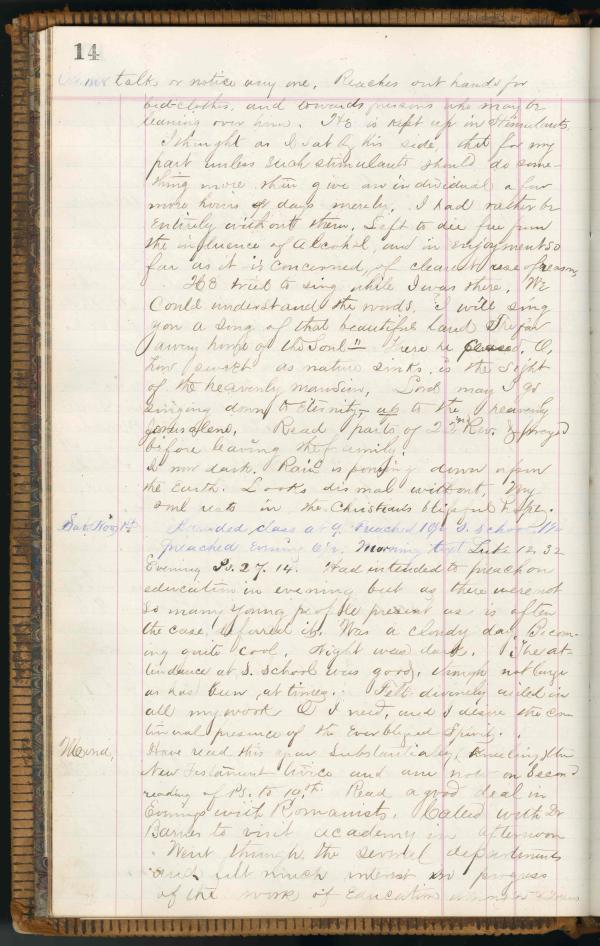 14
talks or notice any one. Reaches out hands for
bed-clothes, and towards persons who may be
leaning over him. He is kept up in Stimulants.
I thought as I sat by his side, that for my
part unless such stimulants should do some-
thing more than give an individual a few
more hours or days merely, I had rather be
entirely without them. Left to die free from
the influence of alcohol, and in enjoyment so
far as it is concerned, of clearest use of reason,
He tried to sing while I was there. We
could understand the words, "I will sing
you a song of that beautiful land The far
away home of the Soul" Here he ceased. O,
how sweet as nature sinks, is the sight
of the heavenly mansion, Lord may I go
singing down to Eternity, - up to the heavenly
Jerusalem. Read parts of 22nd Rev. & prayed
before leaving the family.
Is now dark. Rain is pouring down upon
the Earth. Looks dismal without, My
soul rests in the Christian's blissful hope.
Sab. Nov 1st Attended class at 9. Preached 10½ S. School 12
preached Evening Morning text Luke 12, 32
Evening Ps. 27. 14. Had intended to preach on
education in evening but as there were not
so many young people present as is often
the case, deferred it. Was a cloudy day, Becom-
ing quite cool. Night was dark. The at-
tendance at S. School was good, though not large
as has been, at times. Felt divinely aided in
all my work O I need, and I desire the con
tinual presence of the Ever blessed Spirit.
Mond, Have read this year Substantially (kneeling) the
New Testament twice and am now on Second
reading of Ps. to 19th Read a good deal in
Evenings with Romanists. Called with Dr
Barnes to visit academy in afternoon
Went through the several departments
and felt much interest in progress
of the work of Education